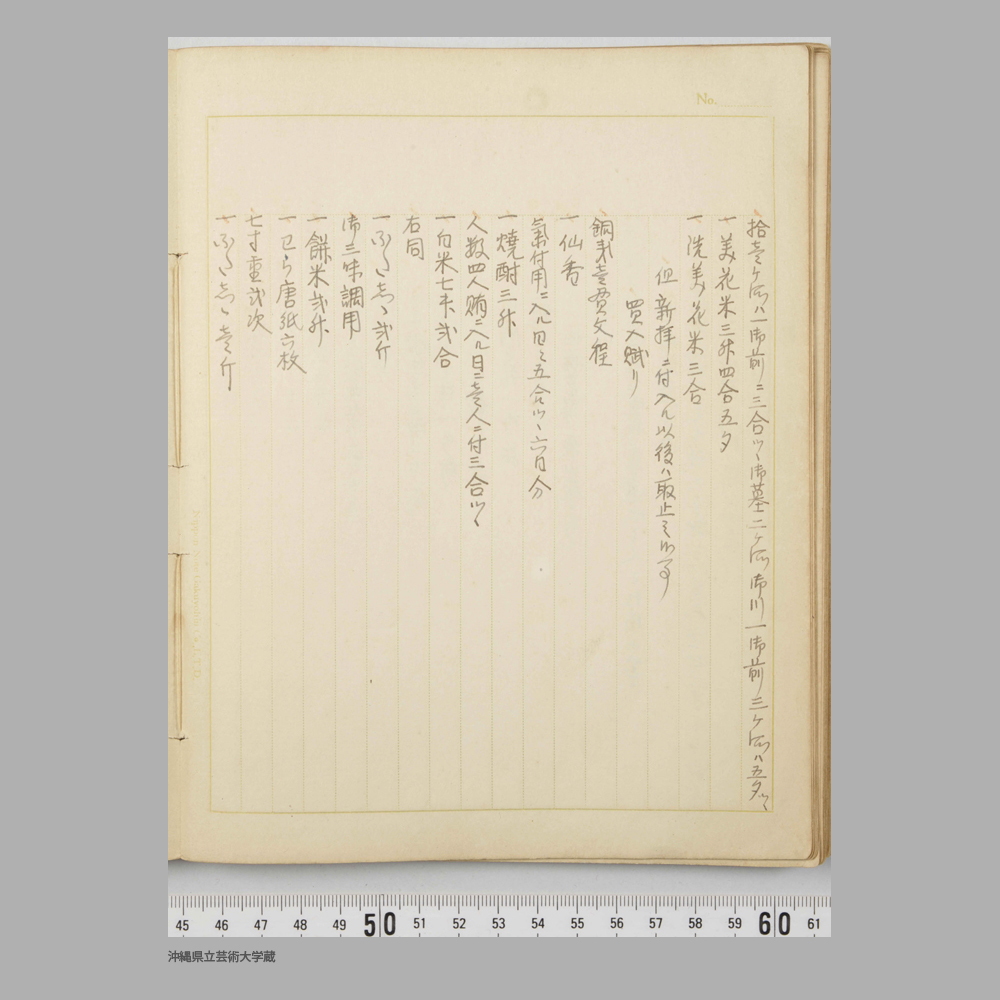 No.
拾壱ヶ所ハ一御前ニ三合ツヽ御墓二ヶ所御川一御前三ヶ所ハ五夕ツヽ
一美花米三升四合五夕
一洗美花米三合
但新拝ニ付入ル以後ハ取止ミ
買入賦リ
銅弐壱貫文程
一仙香
氣付用ニ入ル日ニ五合ツヽ六日分
一焼酎三升
人数四人賄ニ入ル日ニ壱人ニ付三合ツヽ
一白米七升弐合
右同
一ふくしゝ弐斤
御三味調用
一餅米弐升
一わら唐紙六枚
七寸重弐次
一ふくしゝ壱斤
45 46 47 48 49 50 51 52 53 54 55 56 57 58 59 60 61
沖縄県立芸術大学蔵